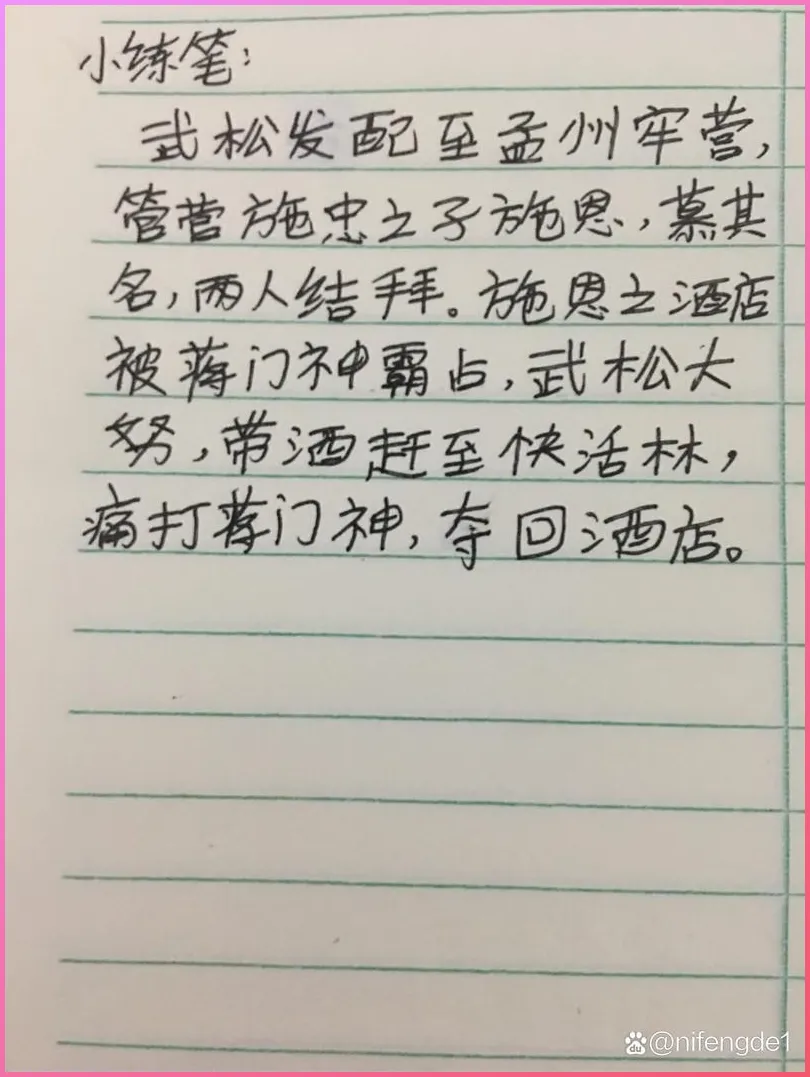 小练笔：
武松发配至孟州牢营，
管营施忠之子施恩，慕其
名，两人结拜。施恩之酒店
被蒋门神霸占，武松大
努，带酒赶至快活林，
痛打蒋门神，夺回酒店。
@nifengde1